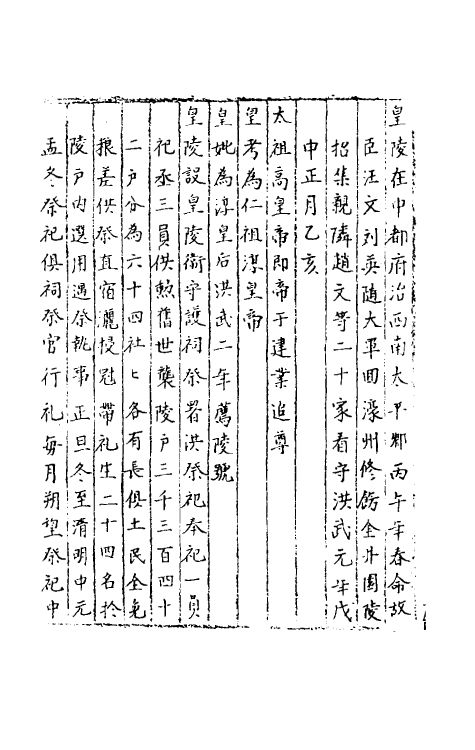 皇陵在中都府治西南太平鄉丙午年春命故
臣汪文刘英随大軍囬濠州修飭全井園陵
招集親隣趙文等二十家看守洪武元年戊
申正月乙亥
太祖高皇帝即帝于建業追尊
皇考為仁祖淳皇帝
皇妣為淳皇后洪武二年薦陵號
皇陵設皇陵衛守護祠祭署洪祭祀奉祀一員
祀丞三員供勲舊世襲陵户三千三百四十
二户分為六十四社匕各有長俱土民全免
粮差供祭直宿灑掃冠帶礼生二十四名於
陵户内選用遇祭執事正旦冬至清明中元
孟冬祭祀俱祠祭官行礼每月朔望祭祀中